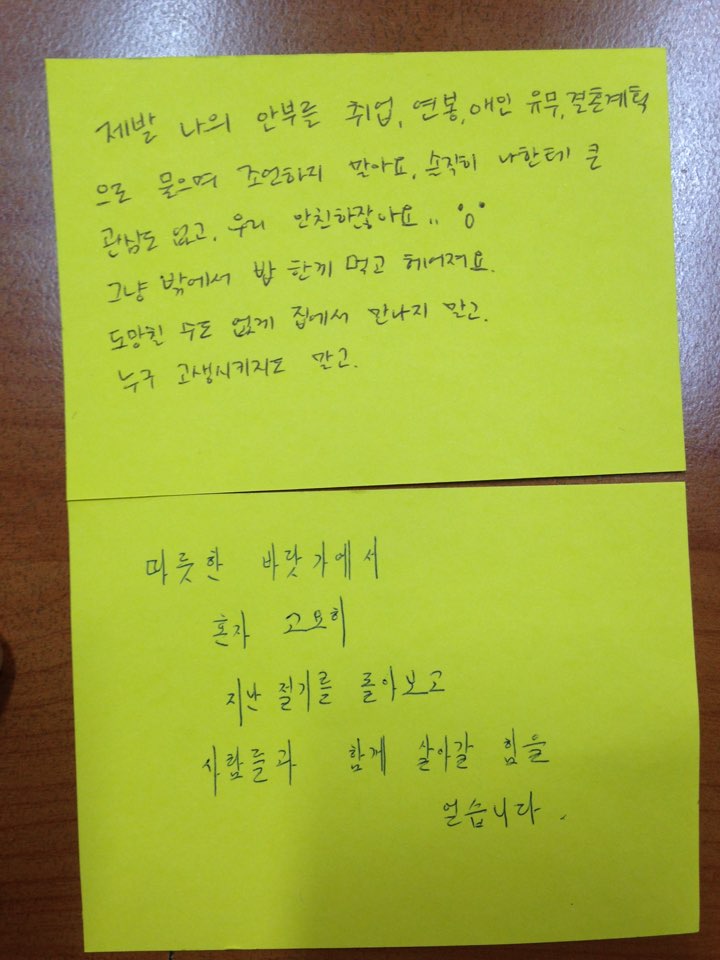 제발 나의 안부를 취업, 연봉, 애인 유무, 결혼계획
으로 물으며 조언하지 말아요. 솔직히 나한테 큰
관심도 없고, 우리 안친하잖아요..
그냥 밖에서 밥 한끼 먹고 헤어져요.
도망칠 수도 없게 집에서 만나지 말고.
누구 고생시키지도 말고.
따뜻한 바닷가에서
혼자 고요히
지난 절기를 돌아보고
사람들과 함께 살아갈 힘을
얻습니다.